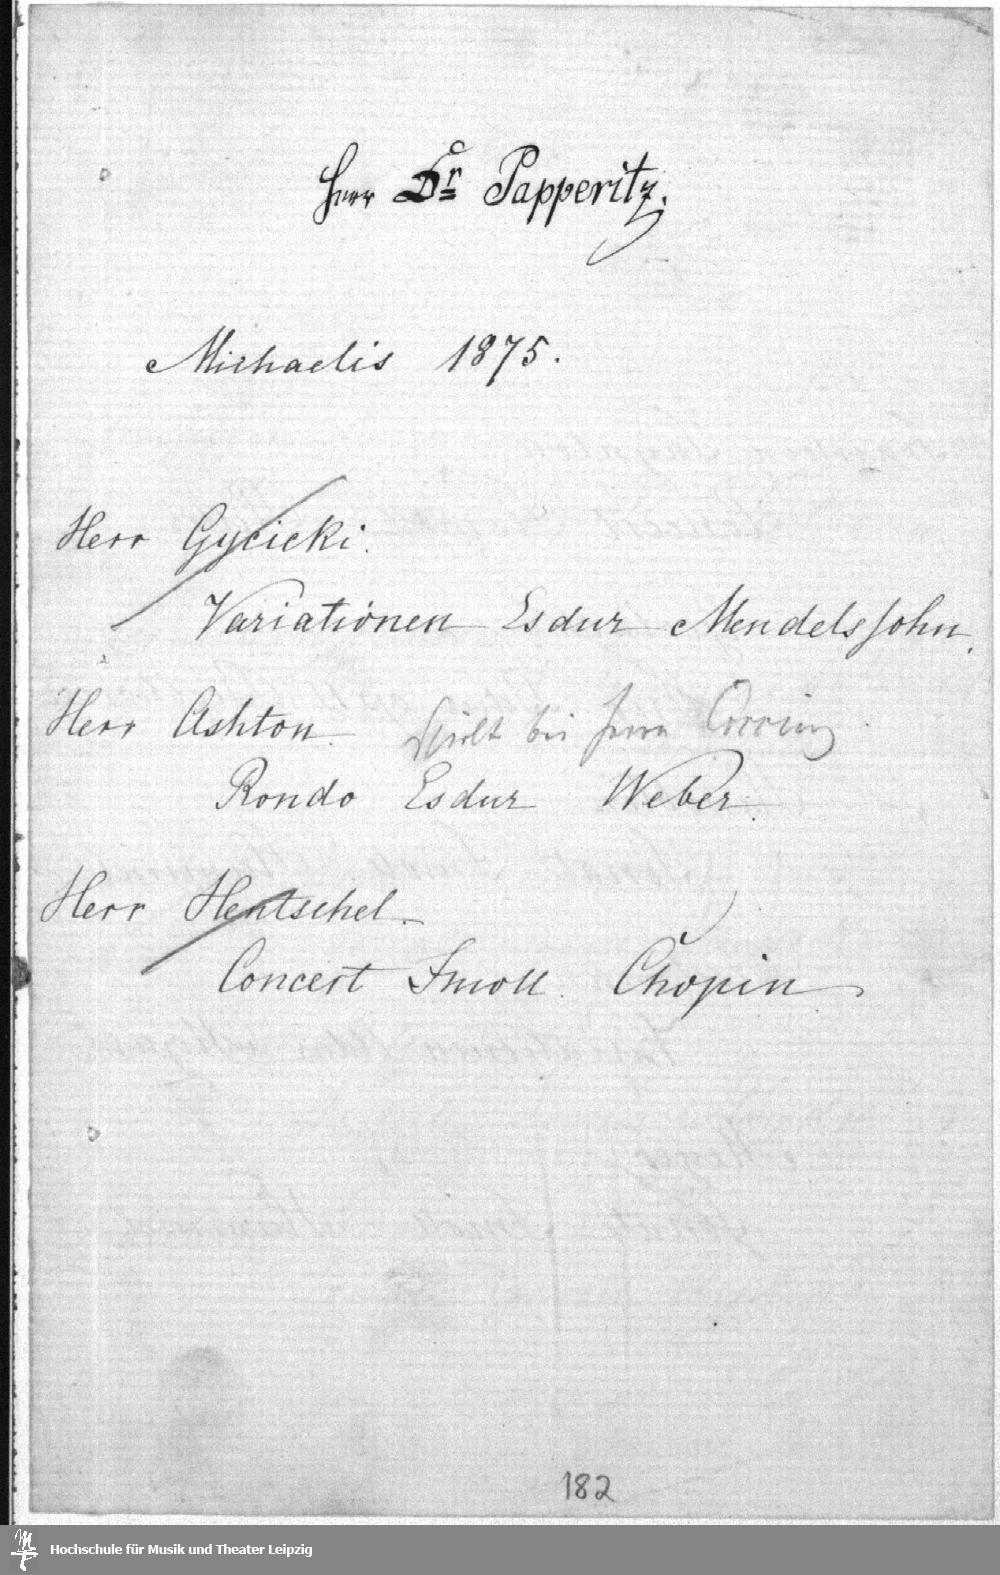 Herr Dr Papperitz.
Michaelis 1875.
Herr Gycicki.
Variationen Esdur Mendelssohn.
Herr Ashton. spielt bei Herrn
Rondo Esdur Weber.
Herr Hentschel.
Concert Fmoll. Chopin
182
Hochschule für Musik und Theater Leipzig